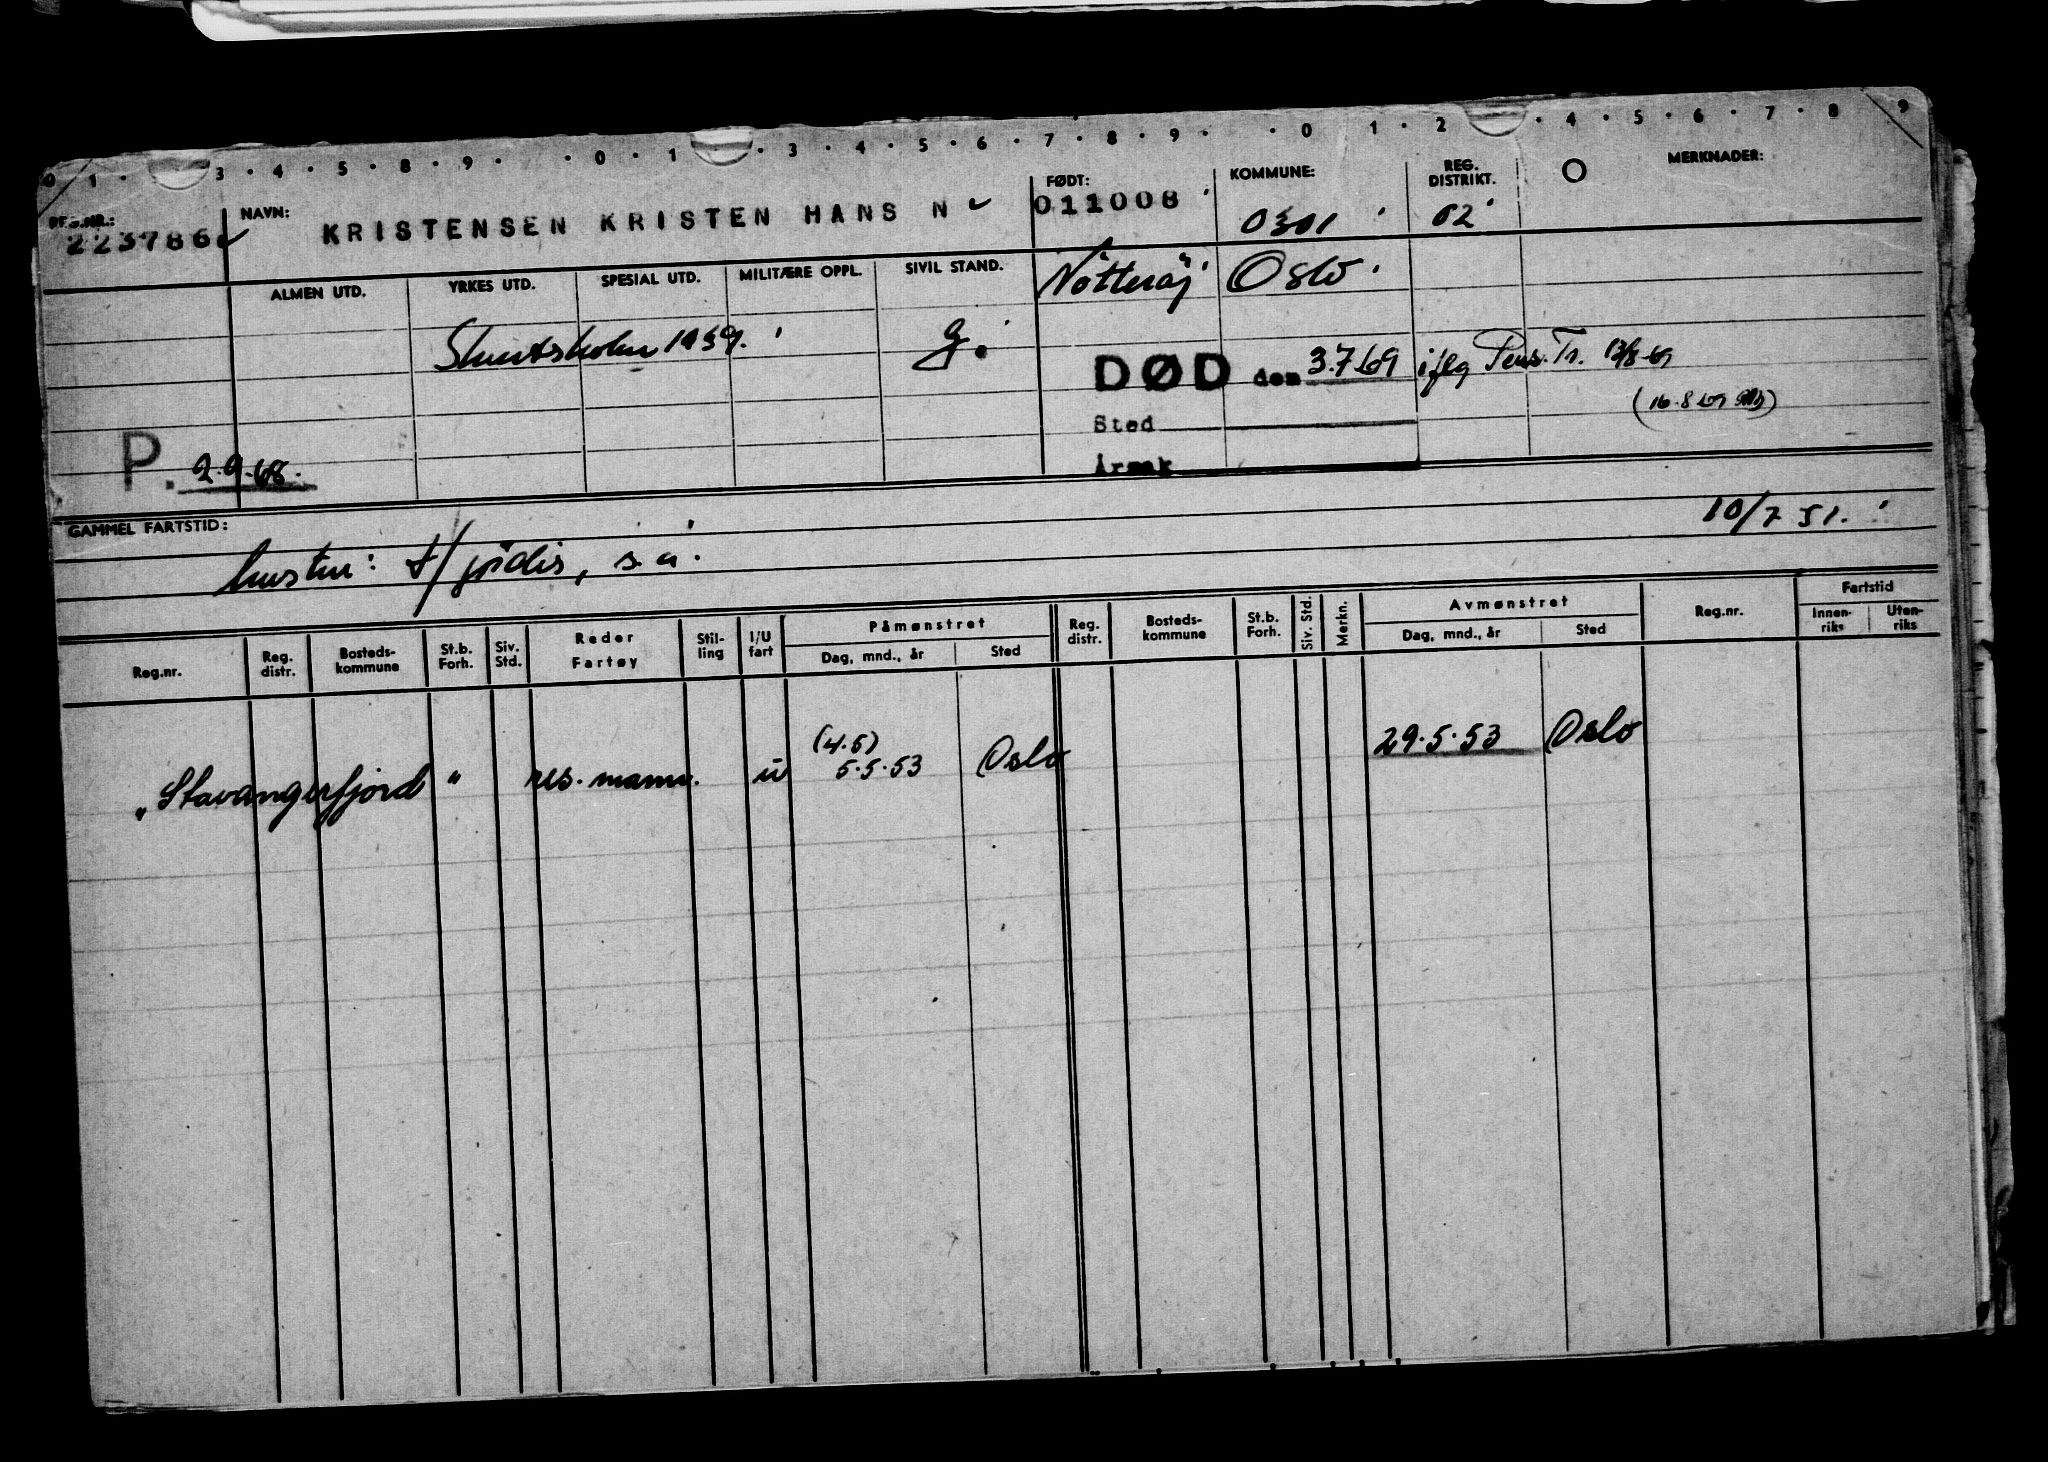 0 1 · 3 · 4 · 5 · 8 · 9 · · 0 · 1 · 3 · 4 · 5 · 6 · 7 · 8 · 9 · · 0 1 · 2 · 4 · 5 · 6 · 7 · 8 9
REG.NR.: NAVN: FØDT: KOMMUNE: REG. DISTRIKT. O MERKNADER:
223786 KRISTENSEN KRISTEN HANS N 011008 0301 02
ALMEN UTD. YRKES UTD. SPESIAL UTD. MILITÆRE OPPL. SIVIL STAND. Nøtterøj Oslo.
1939. g.
DØD den 3.7.69 iflg Pens. Tr. 13/8-69
(16.8.69)
Sted
Årsak
P. 2.9.68.
GAMMEL FARTSTID: 10/7 51.
hustru: Hjördis, s.a.
Reg.nr. Reg. distr. Bosteds-kommune St.b. Forh. Siv. Std. Reder Fartøy Stil-ling I/U fart Påmønstret Dag, mnd., år Sted Reg. distr. Bosteds-kommune St.b. Forh. Siv. Std. Merkn. Avmønstret Dag, mnd., år Sted Reg.nr. Fartstid Innen-riks Uten-riks
(4.5)
"Stavangerfjord" res. mann. u 5.5.53 Oslo 29.5.53 Oslo